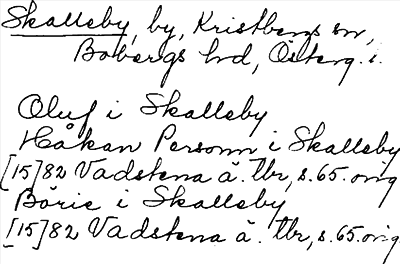 Skalleby, by, Kristbergs sn,
Bobergs hd, Österg. i.
Oluf i Skalleby
Håkan Personn i Skalleby
[15]82 Vadstena ä. tbr, s. 65. orig
Börie i Skalleby
[15]82 Vadstena ä. tbr, s. 65. orig